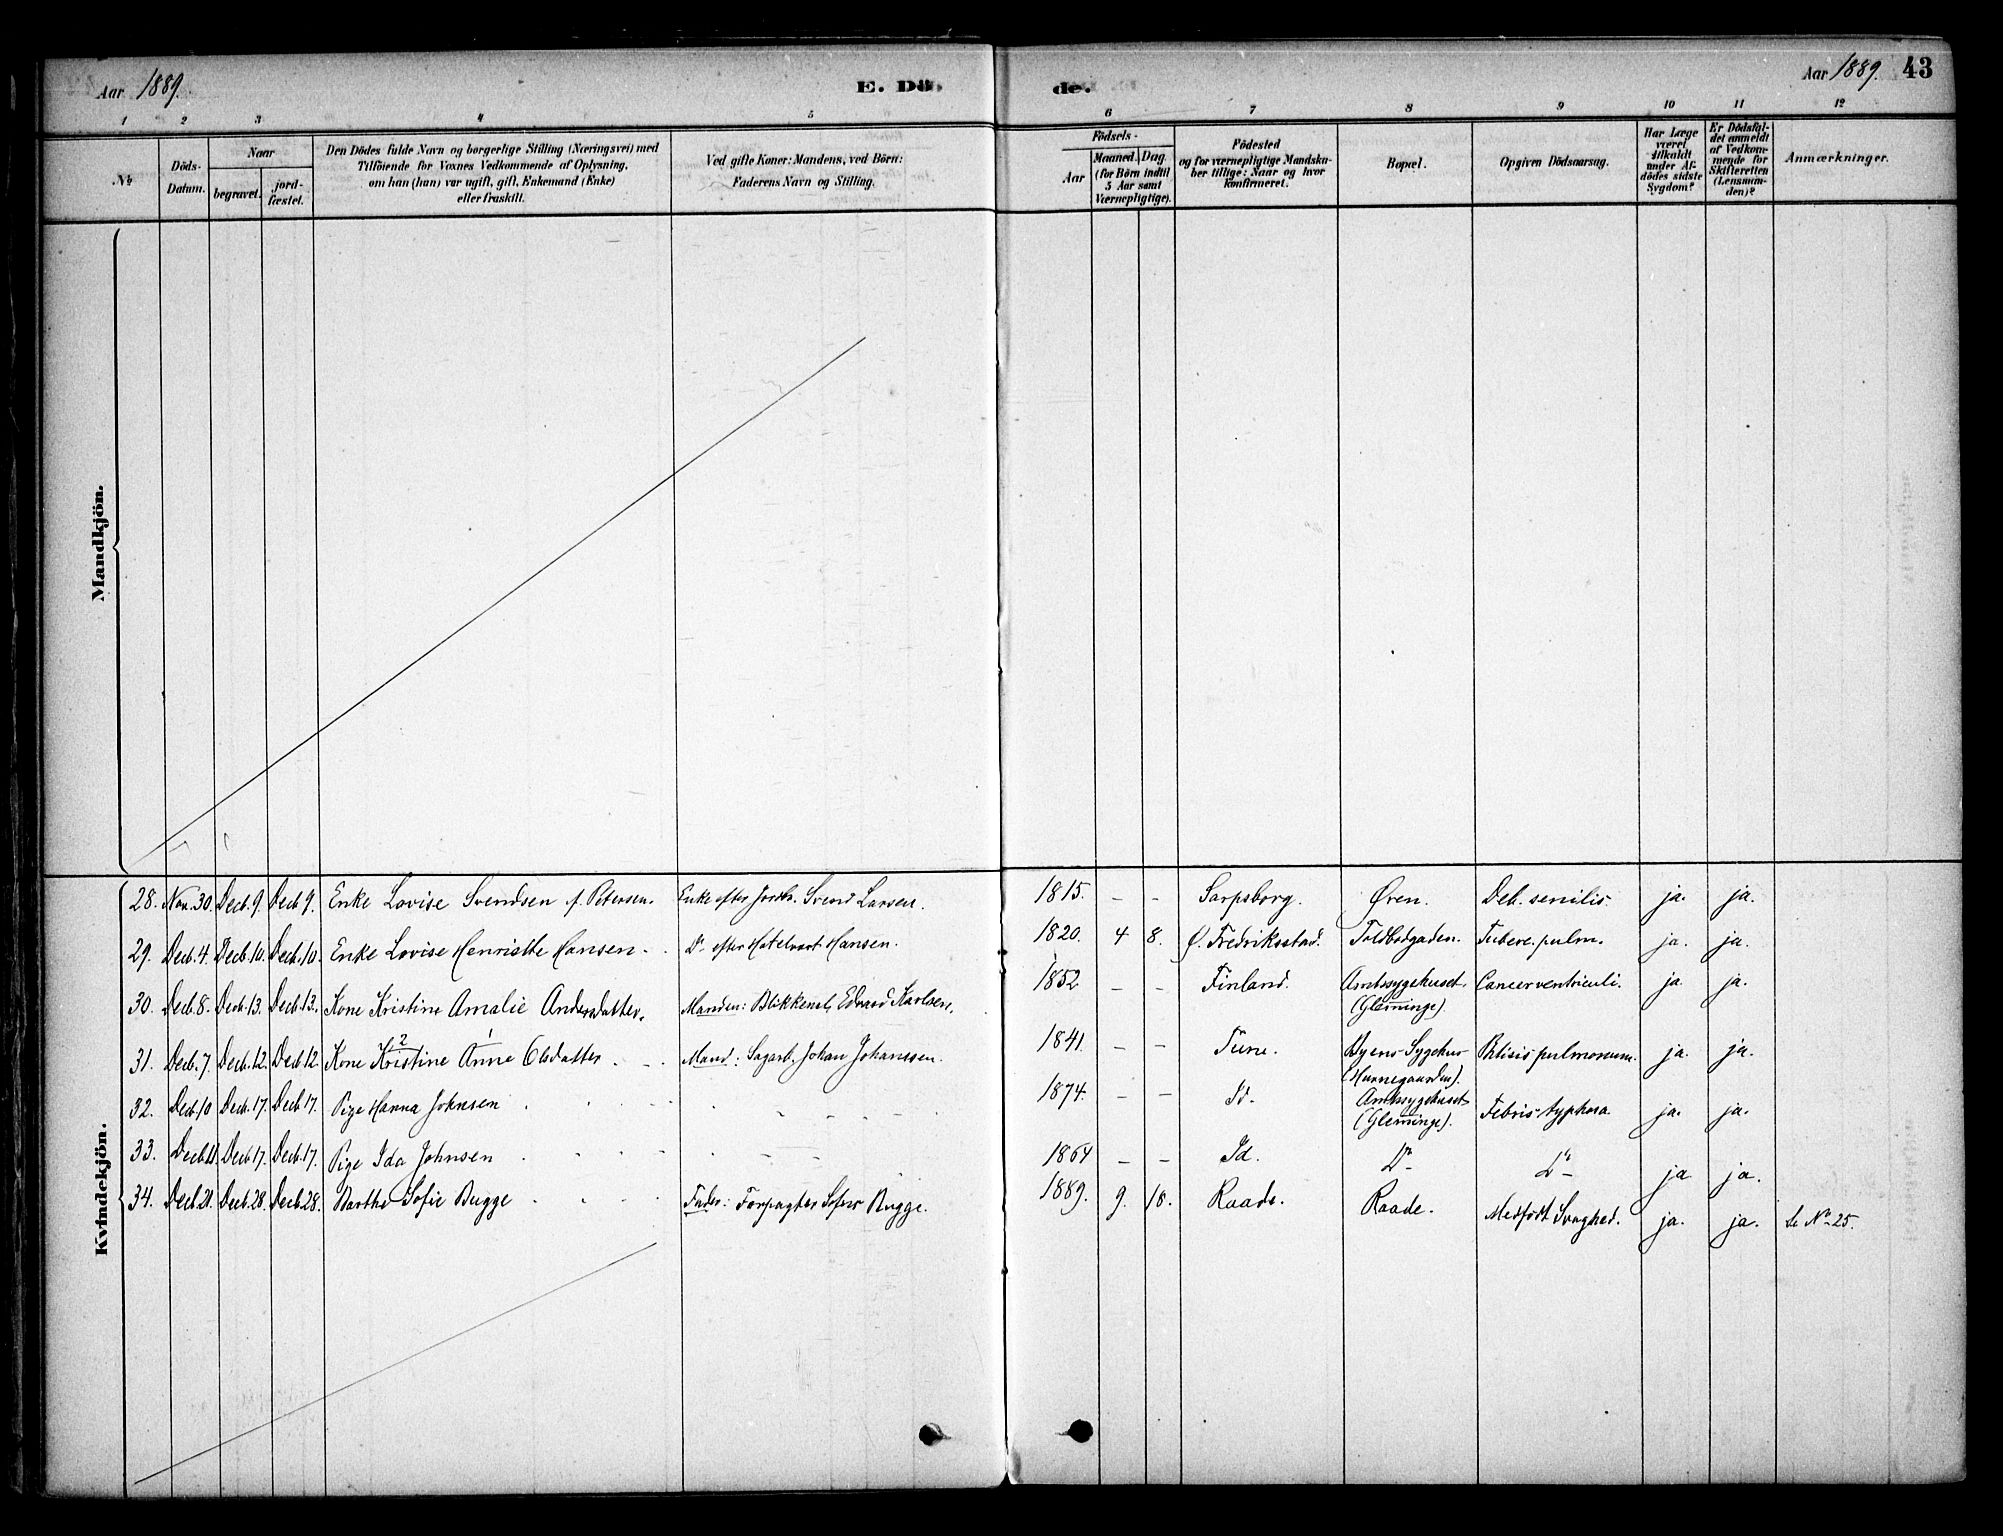 Aar 1889.
E. Dö
de.
Aar 1889. 43
1 2 3 4 5 6 7 8 9 10 11 12
No
Döds-
Datum.
Naar
begravet.
jord-
fæstet.
Den Dödes fulde Navn og borgerlige Stilling (Næringsvei) med
Tilföiende for Voxnes Vedkommende af Oplysning,
om han (hun) var ugift, gift, Enkemand (Enke)
eller fraskilt.
Ved gifte Koner: Mandens, ved Börn:
Faderens Navn og Stilling.
Födsels-
Aar
Maaned. Dag.
(for Börn indtil
5 Aar samt
Værnepligtige).
Födested
og for værnepligtige Mandska-
ber tillige: Naar og hvor
konfirmeret.
Bopæl.
Opgiven Dödsaarsag.
Har Læge
været
tilkaldt
under Af-
dödes sidste
Sygdom?
Er Dödsfal-
det anmeldt
af Vedkom-
mende for
Skifteretten
(Lensman-
den)?
Anmærkninger.
Mandkjön.
Kvindekjön.
28. Nov. 30. Decb. 9. Decb 9. Enke Lovise Svendsen f. Petersen. Enke efter Jordb. Svend Larsen. 1815. - - Sarpsborg. Øren. Deb. senilis. ja. ja.
29. Decb. 4. Decb. 10. Decb. 10. Enke Lovise Henriette Hansen. Do efter Hotelvært Hansen. 1820. 4 8. Ø. Fredriksstad. Toldbodgaden. Tuberc. pulm. ja. ja.
30. Decb. 8. Decb. 13. Decb. 13. Kone Kristine Amalie Andersdatter. Manden: Blikkensl. Edvard Karlsen. 1852 - - Finland. Amtssygehuset (Glemminge). Cancer ventriculi. ja. ja.
31. Decb. 7. Decb. 12. Decb 12. Kone Kristine 2 Anne 1 Olsdatter. Mand: Sagarb. Johan Johanssen. 1841. - - Tune. Byens Sygehus (Hunnegaarden). Phtisis pulmonum. ja. ja.
32. Decb. 10 Decb. 17. Decb 17. Pige Hanna Johnsen 1874. - - Id. Amtssygehuset (Glemminge). Febris typhosa. ja. ja.
33. Decb. Decb. 17. Decb. 17. Pige Ida Johnsen 1864 - - Id. Do Do ja ja.
34. Decb. 21. Decb. 28. Decb. 28. Barthe Sofie Bugge Fader: Forpagter Bugge. 1889. 9. 18. Raade. Raade. Medfödt Svaghed. ja. ja. Se No 25.